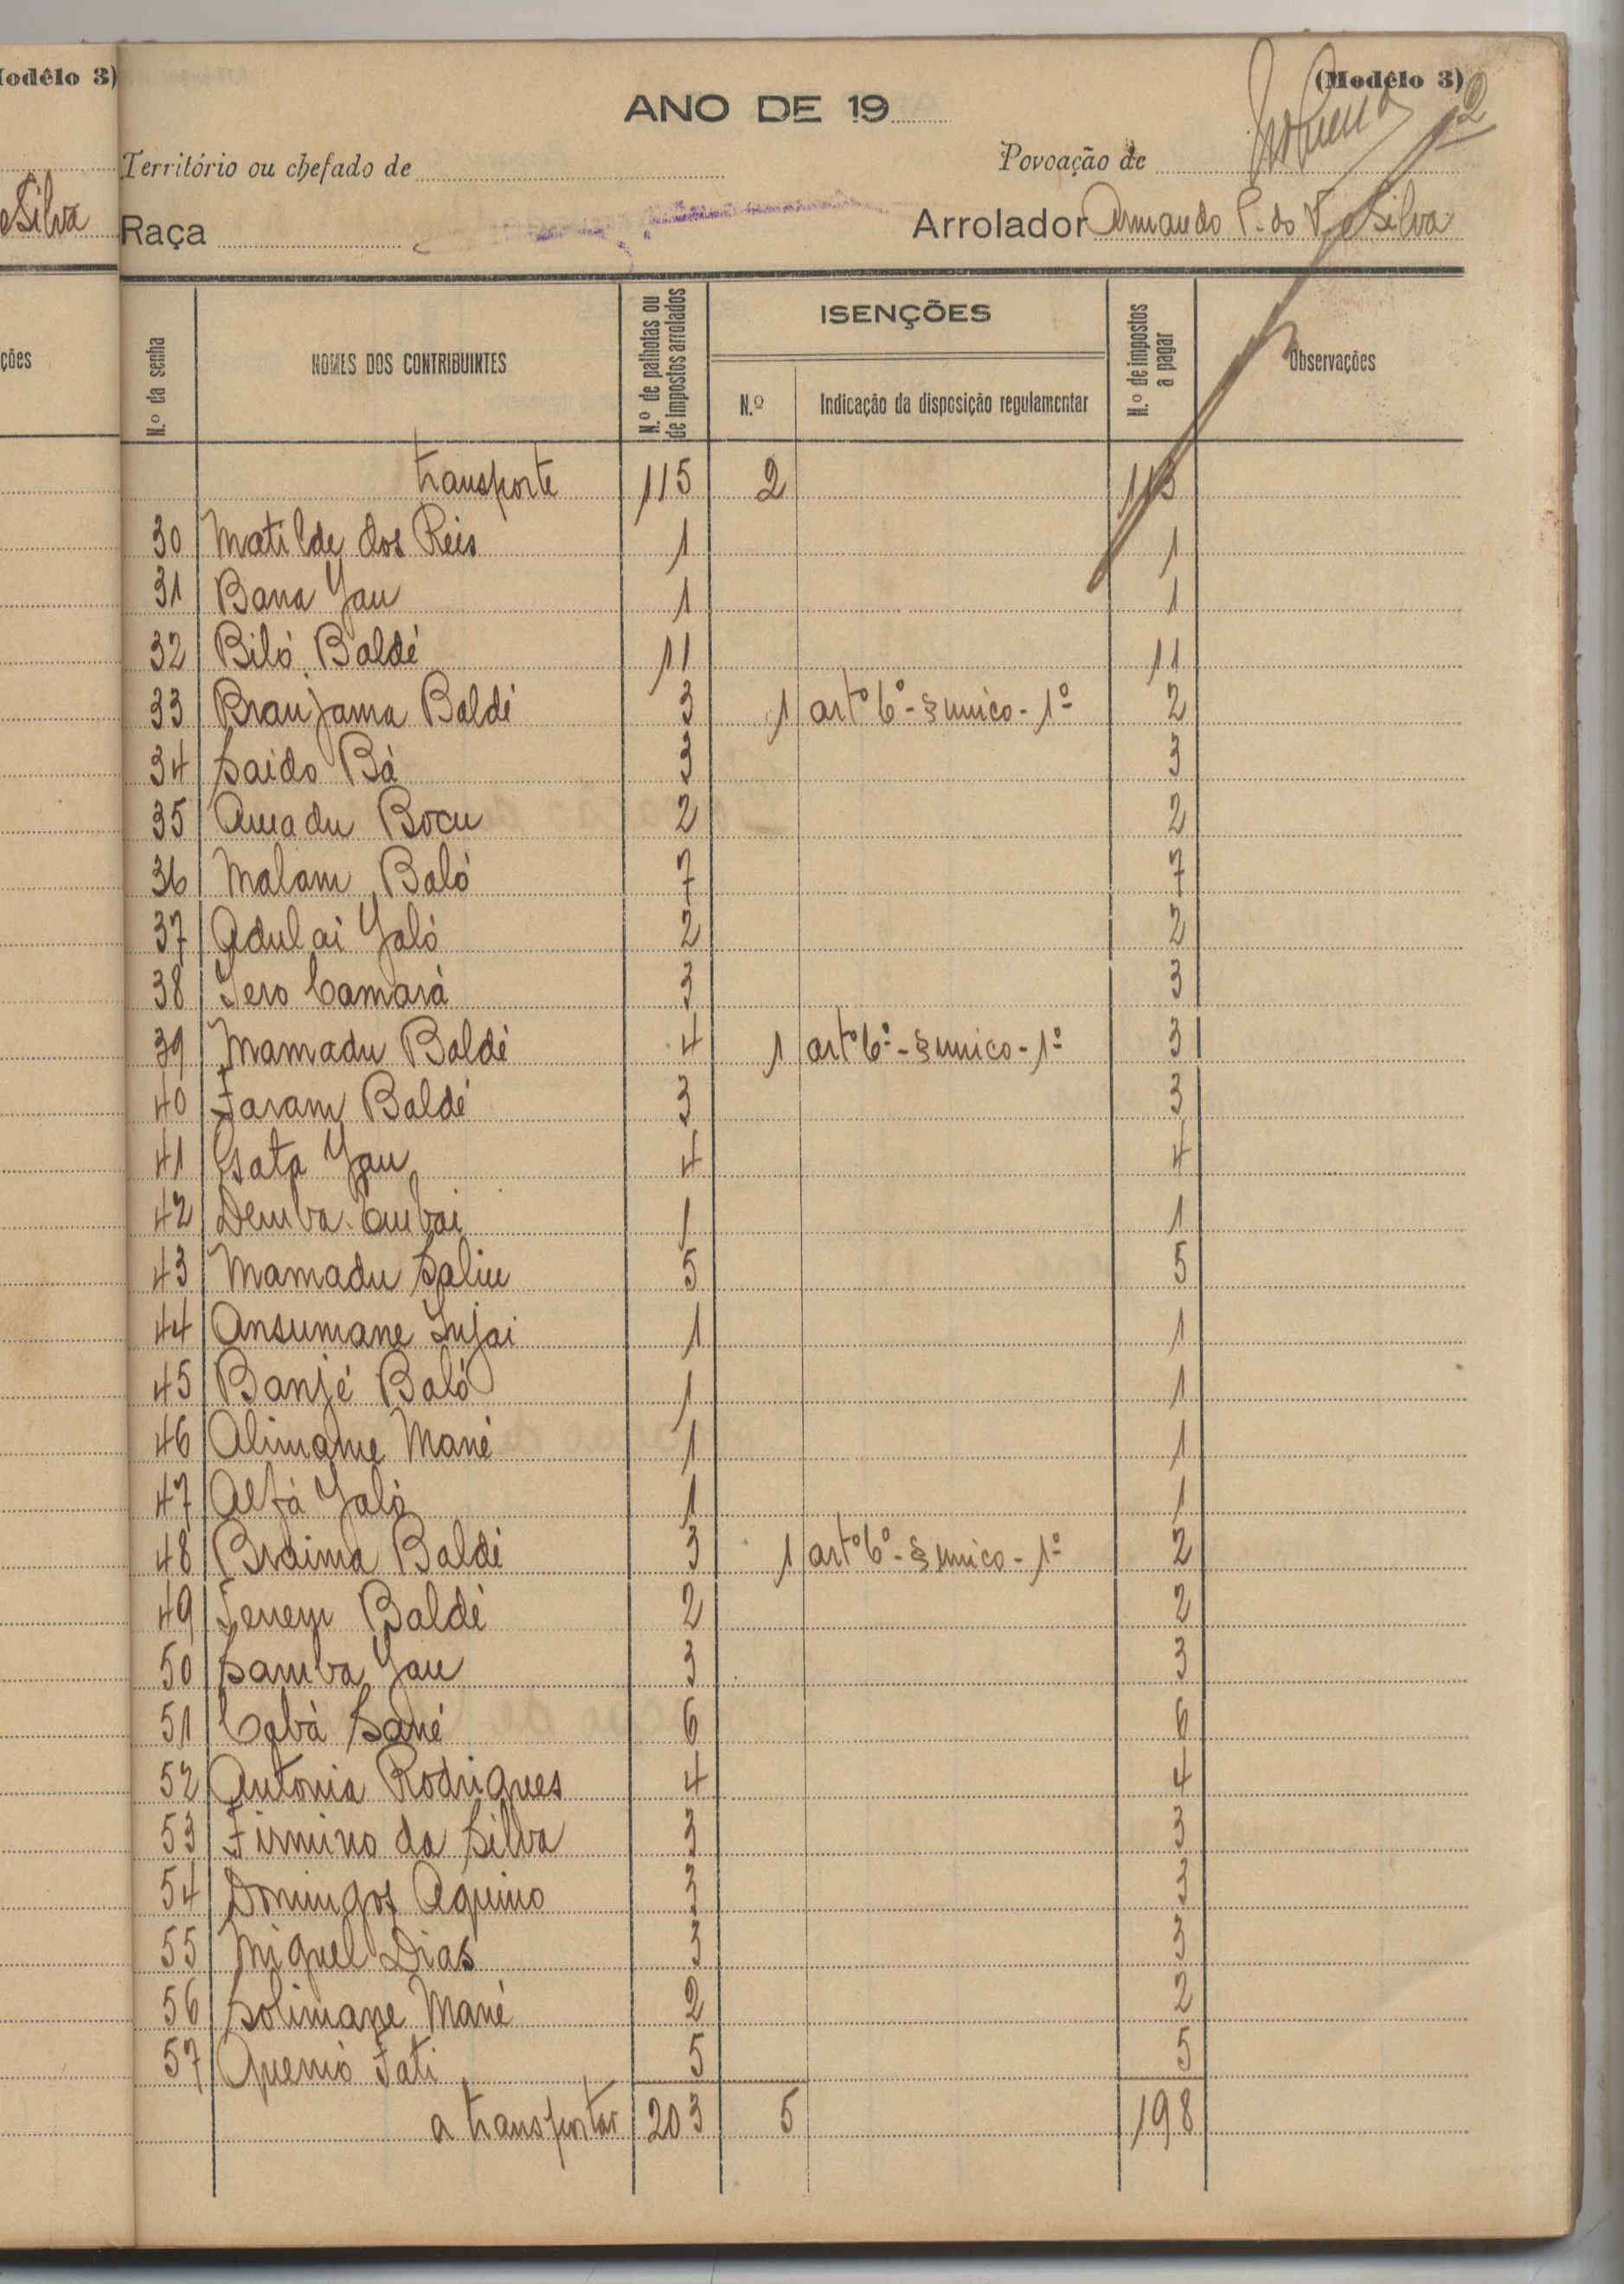 odêlo 3)
Silva
ções
(Modêlo 3)
2
ANO DE 19
Território ou chefado de
Povoação de
Raça
Arrolador Armando P. do V. e Silva
N.º da senha
NOMES DOS CONTRIBUINTES
N.º de palhotas ou de impostos arrolados
ISENÇÕES
N.º
Indicação da disposição regulamentar
N.º de impostos a pagar
Observações
transporte 115 2 113
30 Matilde dos Reis 1 1
31 Bana Jau 1 1
32 Biló Baldé 11 11
33 Braujama Baldé 3 1 artº 6º - § unico - 1º 2
34 Saido Bá 3 3
35 Amadu Bocu 2 2
36 Malam Baló 7 7
37 Adulai Jaló 2 2
38 Jero Camará 3 3
39 Mamadu Baldé 4 1 artº 6º - § unico - 1º 3
40 Faram Baldé 3 3
41 Gata Jau 4 4
42 Demba 1 1
43 Mamadu Saliu 5 5
44 Ansumane Injai 1 1
45 Banjé Baló 1 1
46 Alimame Mané 1 1
47 Alfá Jaló 1 1
48 Braima Baldé 3 1 artº 6º - § unico - 1º 2
49 Tenem Baldé 2 2
50 Samba Jau 3 3
51 Cabá Sané 6 6
52 Antonia Rodrigues 4 4
53 Firmino da Silva 3 3
54 Domingos Aquino 3 3
55 Miguel Dias 3 3
56 Solimane Mané 2 2
57 Quemó Fati 5 5
a transportar 203 5 198